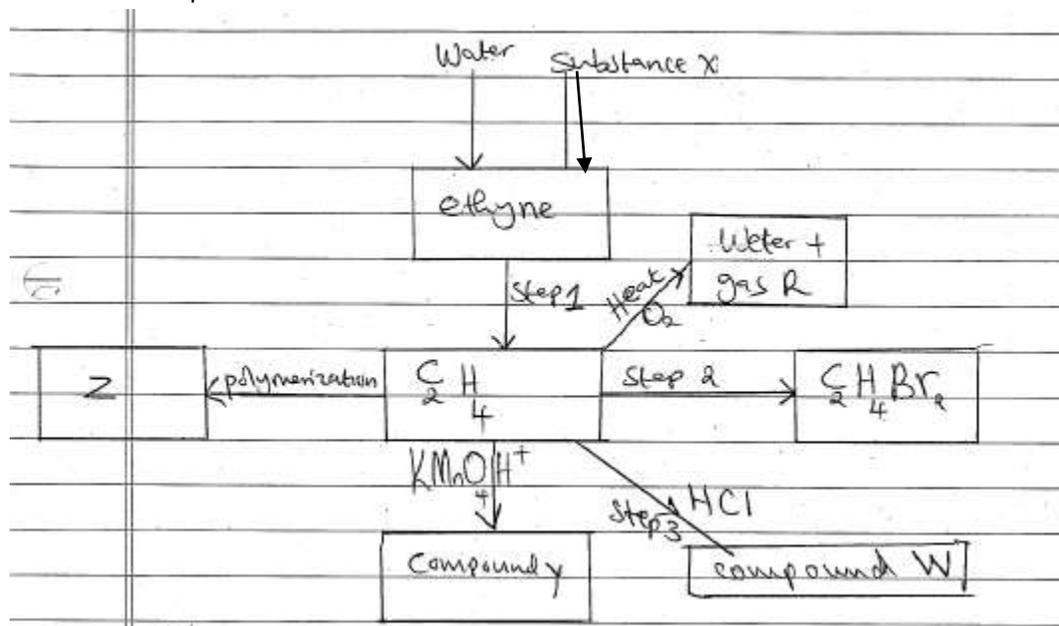 Water
Substance X
ethyne
Water +
gas R
Step 1
Heat
O2
Z
polymerization
C2H4
Step 2
C2H4Br2
KMnO4 H+
HCl
Step 3
Compound y
compound W